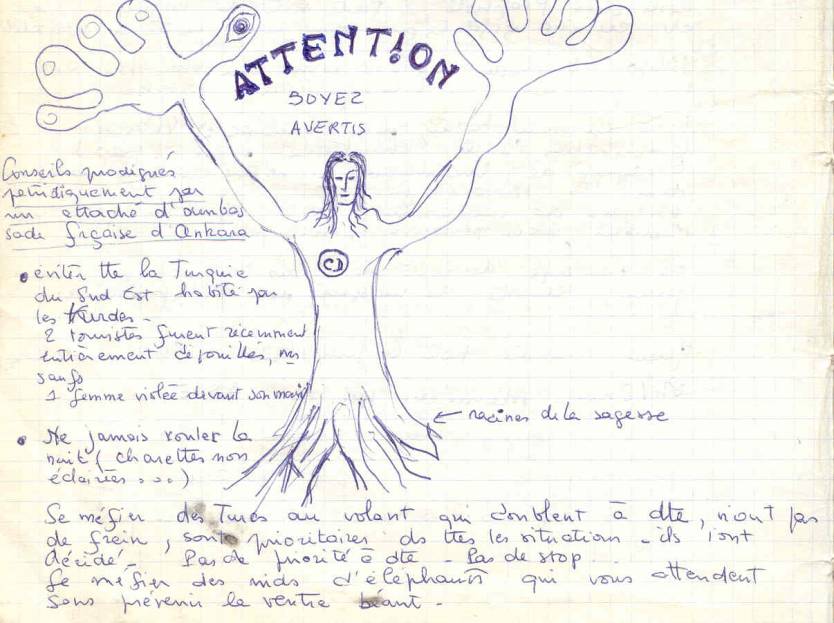 ATTENTION
SOYEZ
AVERTIS
Conseils prodigués
périodiquement par
un attaché d'ambas
sade frçaise d'Ankara
CD
• éviter tte la Turquie
du Sud Est habité par
les Kurdes -
2 touristes furent récemment
entièrement dépouillés, ms
saufs
1 femme violée devant son mari
← racines de la sagesse
• Ne jamais rouler la
nuit ( charettes non
éclairées ....)
Se méfier des Turcs au volant qui doublent à dte, n'ont pas
de frein, sont prioritaires ds ttes les situations - ils l'ont
décidé - Pas de priorité à dte - Pas de stop.
Se méfier des nids d'éléphants qui vous attendent
sans prévenir le ventre béant -